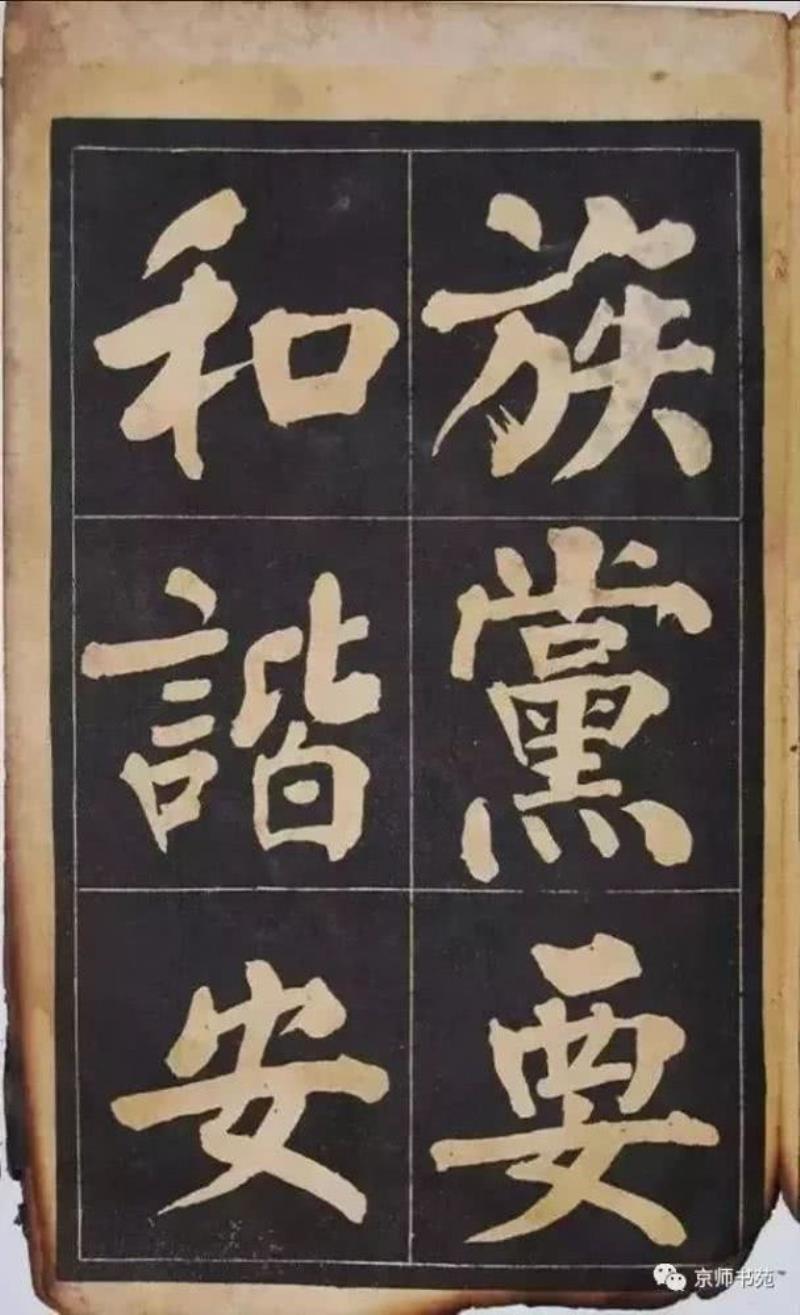 族黨要
和諧安
京师书苑